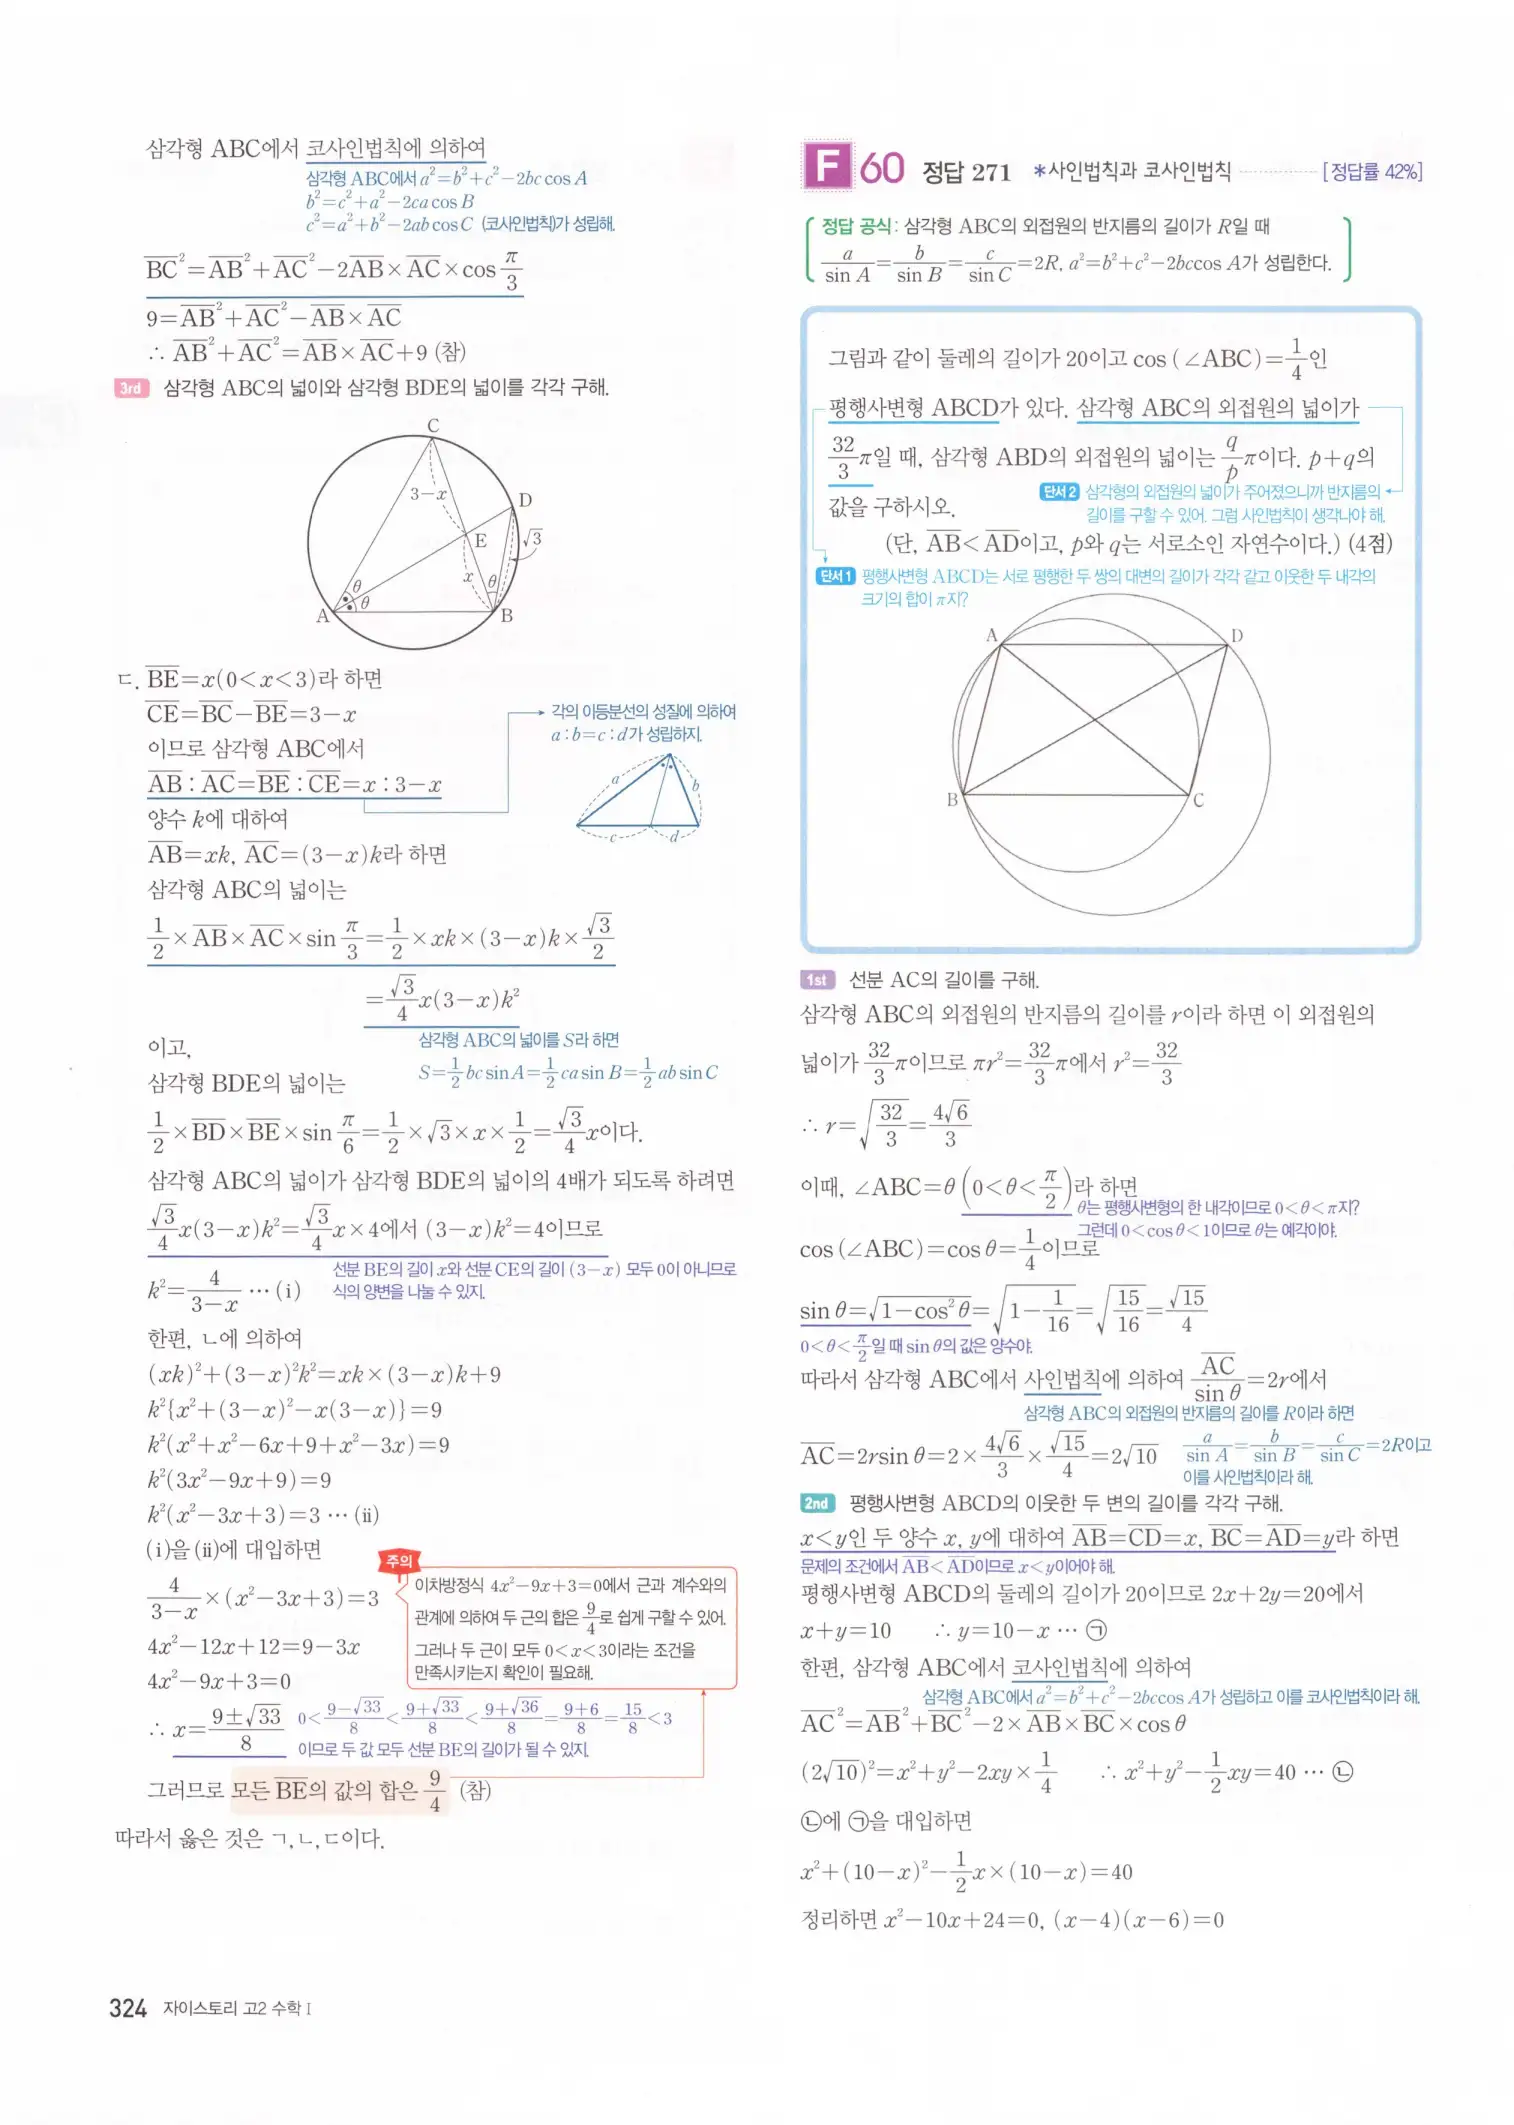 삼각형 ABC에서 코사인법칙에 의하여
삼각형 ABC에서 a²=b²+c²-2bc cos A
b²=c²+a²-2ca cos B
c²=a²+b²-2ab cos C (코사인법칙)가 성립해.
BC²=AB²+AC²-2AB×AC×cos π/3
9=AB²+AC²-AB×AC
∴ AB²+AC²=AB×AC+9 (참)
3rd 삼각형 ABC의 넓이와 삼각형 BDE의 넓이를 각각 구해.
C
3-x
D
E
√3
x
θ
θ
θ
A
B
ㄷ. BE=x(0<x<3)라 하면
CE=BC-BE=3-x
이므로 삼각형 ABC에서
AB : AC=BE : CE=x : 3-x
각의 이등분선의 성질에 의하여
a : b=c : d가 성립하지.
a
b
c
d
양수 k에 대하여
AB=xk, AC=(3-x)k라 하면
삼각형 ABC의 넓이는
1/2×AB×AC×sin π/3=1/2×xk×(3-x)k×√3/2
=√3/4 x(3-x)k²
삼각형 ABC의 넓이를 S라 하면
S=1/2 bc sin A=1/2 ca sin B=1/2 ab sin C
이고,
삼각형 BDE의 넓이는
1/2×BD×BE×sin π/6=1/2×√3×x×1/2=√3/4 x이다.
삼각형 ABC의 넓이가 삼각형 BDE의 넓이의 4배가 되도록 하려면
√3/4 x(3-x)k²=√3/4 x×4에서 (3-x)k²=4이므로
선분 BE의 길이 x와 선분 CE의 길이 (3-x) 모두 0이 아니므로
식의 양변을 나눌 수 있지.
k²=4/(3-x) … (ⅰ)
한편, ㄴ에 의하여
(xk)²+(3-x)²k²=xk×(3-x)k+9
k²{x²+(3-x)²-x(3-x)}=9
k²(x²+x²-6x+9+x²-3x)=9
k²(3x²-9x+9)=9
k²(x²-3x+3)=3 … (ⅱ)
(ⅰ)을 (ⅱ)에 대입하면
4/(3-x)×(x²-3x+3)=3
4x²-12x+12=9-3x
4x²-9x+3=0
∴ x=(9±√33)/8
주의
이차방정식 4x²-9x+3=0에서 근과 계수와의
관계에 의하여 두 근의 합은 9/4로 쉽게 구할 수 있어.
그러나 두 근이 모두 0<x<3이라는 조건을
만족시키는지 확인이 필요해.
0<(9-√33)/8<(9+√33)/8<(9+√36)/8=(9+6)/8=15/8<3
이므로 두 값 모두 선분 BE의 길이가 될 수 있지.
그러므로 모든 BE의 값의 합은 9/4 (참)
따라서 옳은 것은 ㄱ, ㄴ, ㄷ이다.
324 자이스토리 고2 수학Ⅰ
F 60 정답 271 *사인법칙과 코사인법칙 [정답률 42%]
정답 공식: 삼각형 ABC의 외접원의 반지름의 길이가 R일 때
a/sin A=b/sin B=c/sin C=2R, a²=b²+c²-2bccos A가 성립한다.
그림과 같이 둘레의 길이가 20이고 cos (∠ABC)=1/4인
평행사변형 ABCD가 있다. 삼각형 ABC의 외접원의 넓이가
32/3 π일 때, 삼각형 ABD의 외접원의 넓이는 q/p π이다. p+q의
값을 구하시오.
단서2 삼각형의 외접원의 넓이가 주어졌으니까 반지름의
길이를 구할 수 있어. 그럼 사인법칙이 생각나야 해.
(단, AB<AD이고, p와 q는 서로소인 자연수이다.) (4점)
단서1 평행사변형 ABCD는 서로 평행한 두 쌍의 대변의 길이가 각각 같고 이웃한 두 내각의
크기의 합이 π지?
A
D
B
C
1st 선분 AC의 길이를 구해.
삼각형 ABC의 외접원의 반지름의 길이를 r이라 하면 이 외접원의
넓이가 32/3 π이므로 πr²=32/3 π에서 r²=32/3
∴ r=√(32/3)=4√6/3
이때, ∠ABC=θ (0<θ<π/2)라 하면
θ는 평행사변형의 한 내각이므로 0<θ<π지?
그런데 0<cos θ<1이므로 θ는 예각이야.
cos (∠ABC)=cos θ=1/4이므로
sin θ=√(1-cos²θ)=√(1-1/16)=√(15/16)=√15/4
0<θ<π/2일 때 sin θ의 값은 양수야.
따라서 삼각형 ABC에서 사인법칙에 의하여 AC/sin θ=2r에서
삼각형 ABC의 외접원의 반지름의 길이를 R이라 하면
a/sin A=b/sin B=c/sin C=2R이고
이를 사인법칙이라 해.
AC=2rsin θ=2×4√6/3×√15/4=2√10
2nd 평행사변형 ABCD의 이웃한 두 변의 길이를 각각 구해.
x<y인 두 양수 x, y에 대하여 AB=CD=x, BC=AD=y라 하면
문제의 조건에서 AB<AD이므로 x<y이어야 해.
평행사변형 ABCD의 둘레의 길이가 20이므로 2x+2y=20에서
x+y=10 ∴ y=10-x … ㉠
한편, 삼각형 ABC에서 코사인법칙에 의하여
삼각형 ABC에서 a²=b²+c²-2bccos A가 성립하고 이를 코사인법칙이라 해.
AC²=AB²+BC²-2×AB×BC×cos θ
(2√10)²=x²+y²-2xy×1/4 ∴ x²+y²-1/2 xy=40 … ㉡
㉡에 ㉠을 대입하면
x²+(10-x)²-1/2 x×(10-x)=40
정리하면 x²-10x+24=0, (x-4)(x-6)=0